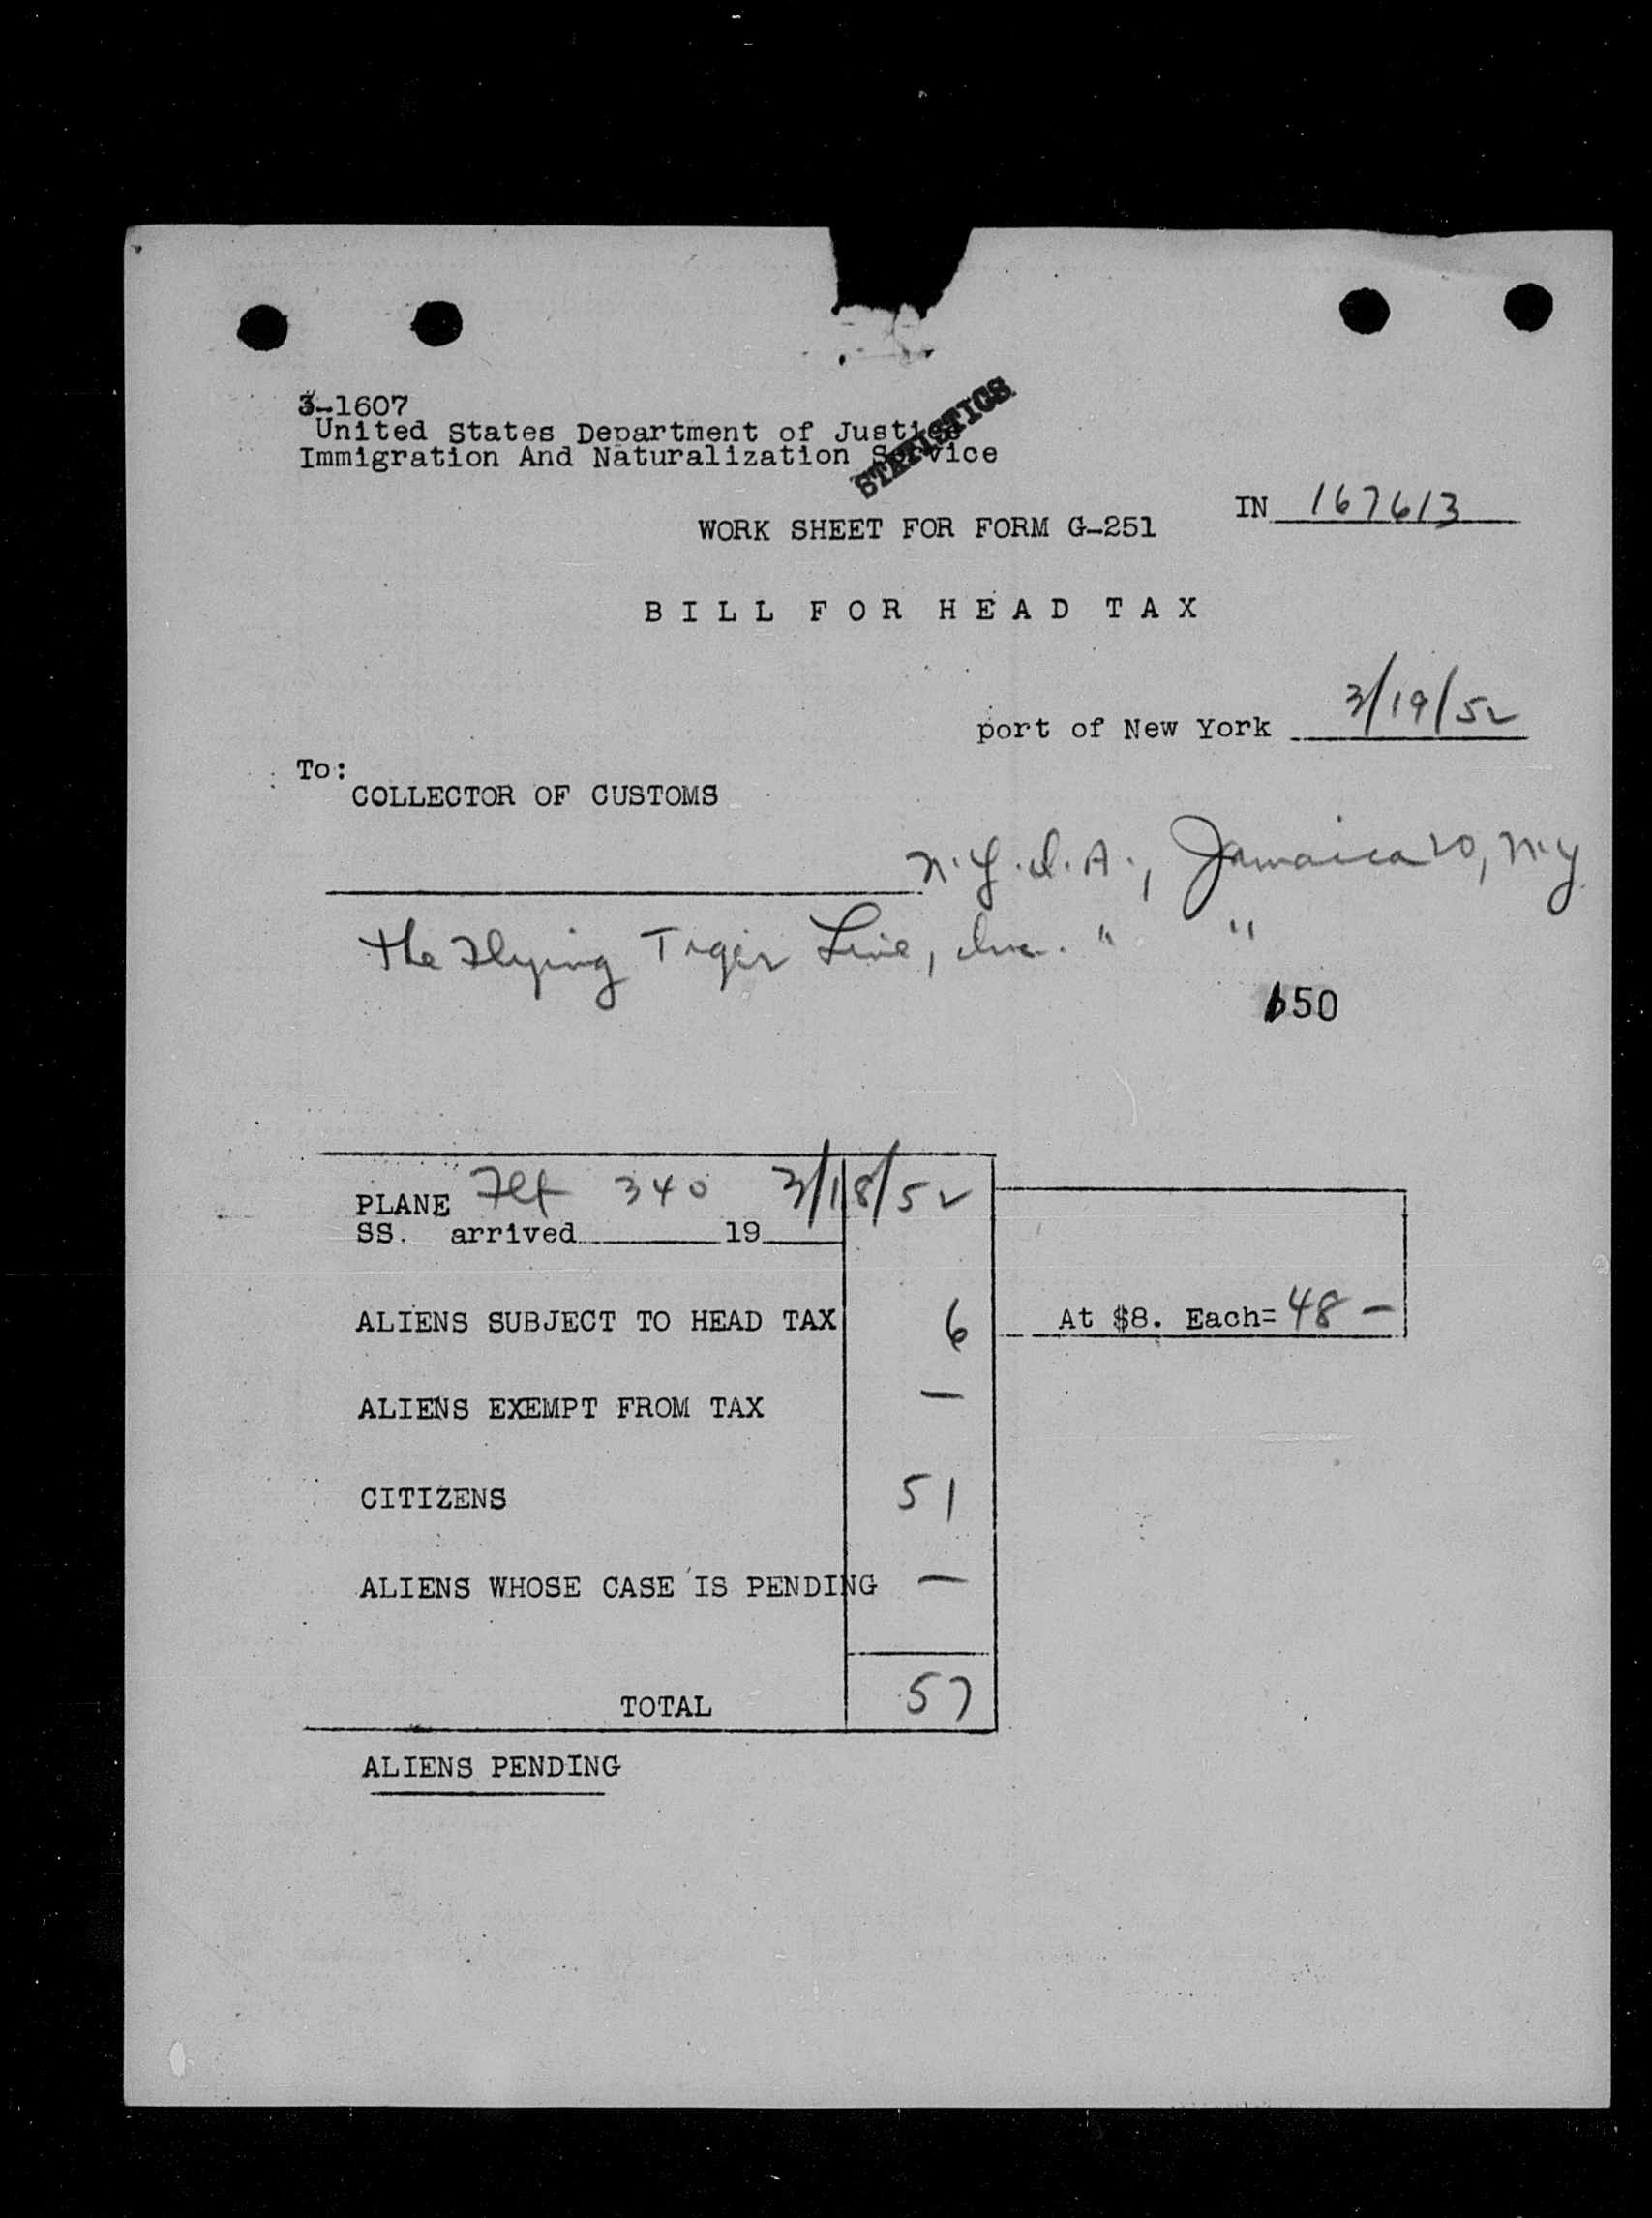 3-1607
United States Department of Justice
Immigration And Naturalization Service
STATISTICS
IN 167613
WORK SHEET FOR FORM G-251
BILL FOR HEAD TAX
port of New York 3/19/52
To:
COLLECTOR OF CUSTOMS
N.Y.I.A., Jamaica 20, N.Y
The Flying Tiger Line, Inc. " "
650
PLANE Flt 340 3/18/52
SS. arrived 19
ALIENS SUBJECT TO HEAD TAX 6 At $8. Each= 48 —
ALIENS EXEMPT FROM TAX —
CITIZENS 51
ALIENS WHOSE CASE IS PENDING —
TOTAL 57
ALIENS PENDING